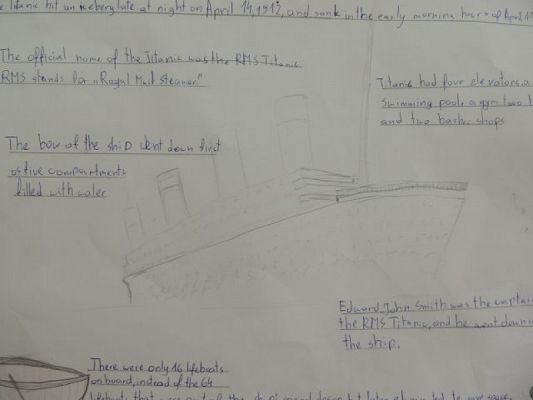 Titanic hit an iceberg late at night on April 14, 1912, and sank in the early morning hours of April
The official name of the Titanic was the RMS Titanic
RMS stands for "Royal Mail Steamer"
Titanic had four elevators, a
swimming pool, a gym two
and two barber shops
The bow of the ship went down first
as five compartments
filled with water
Edward John Smith was the captain
the RMS Titanic, and he went down
the ship.
There were only 16 lifeboats
on board, instead of the 64
lifeboats that were